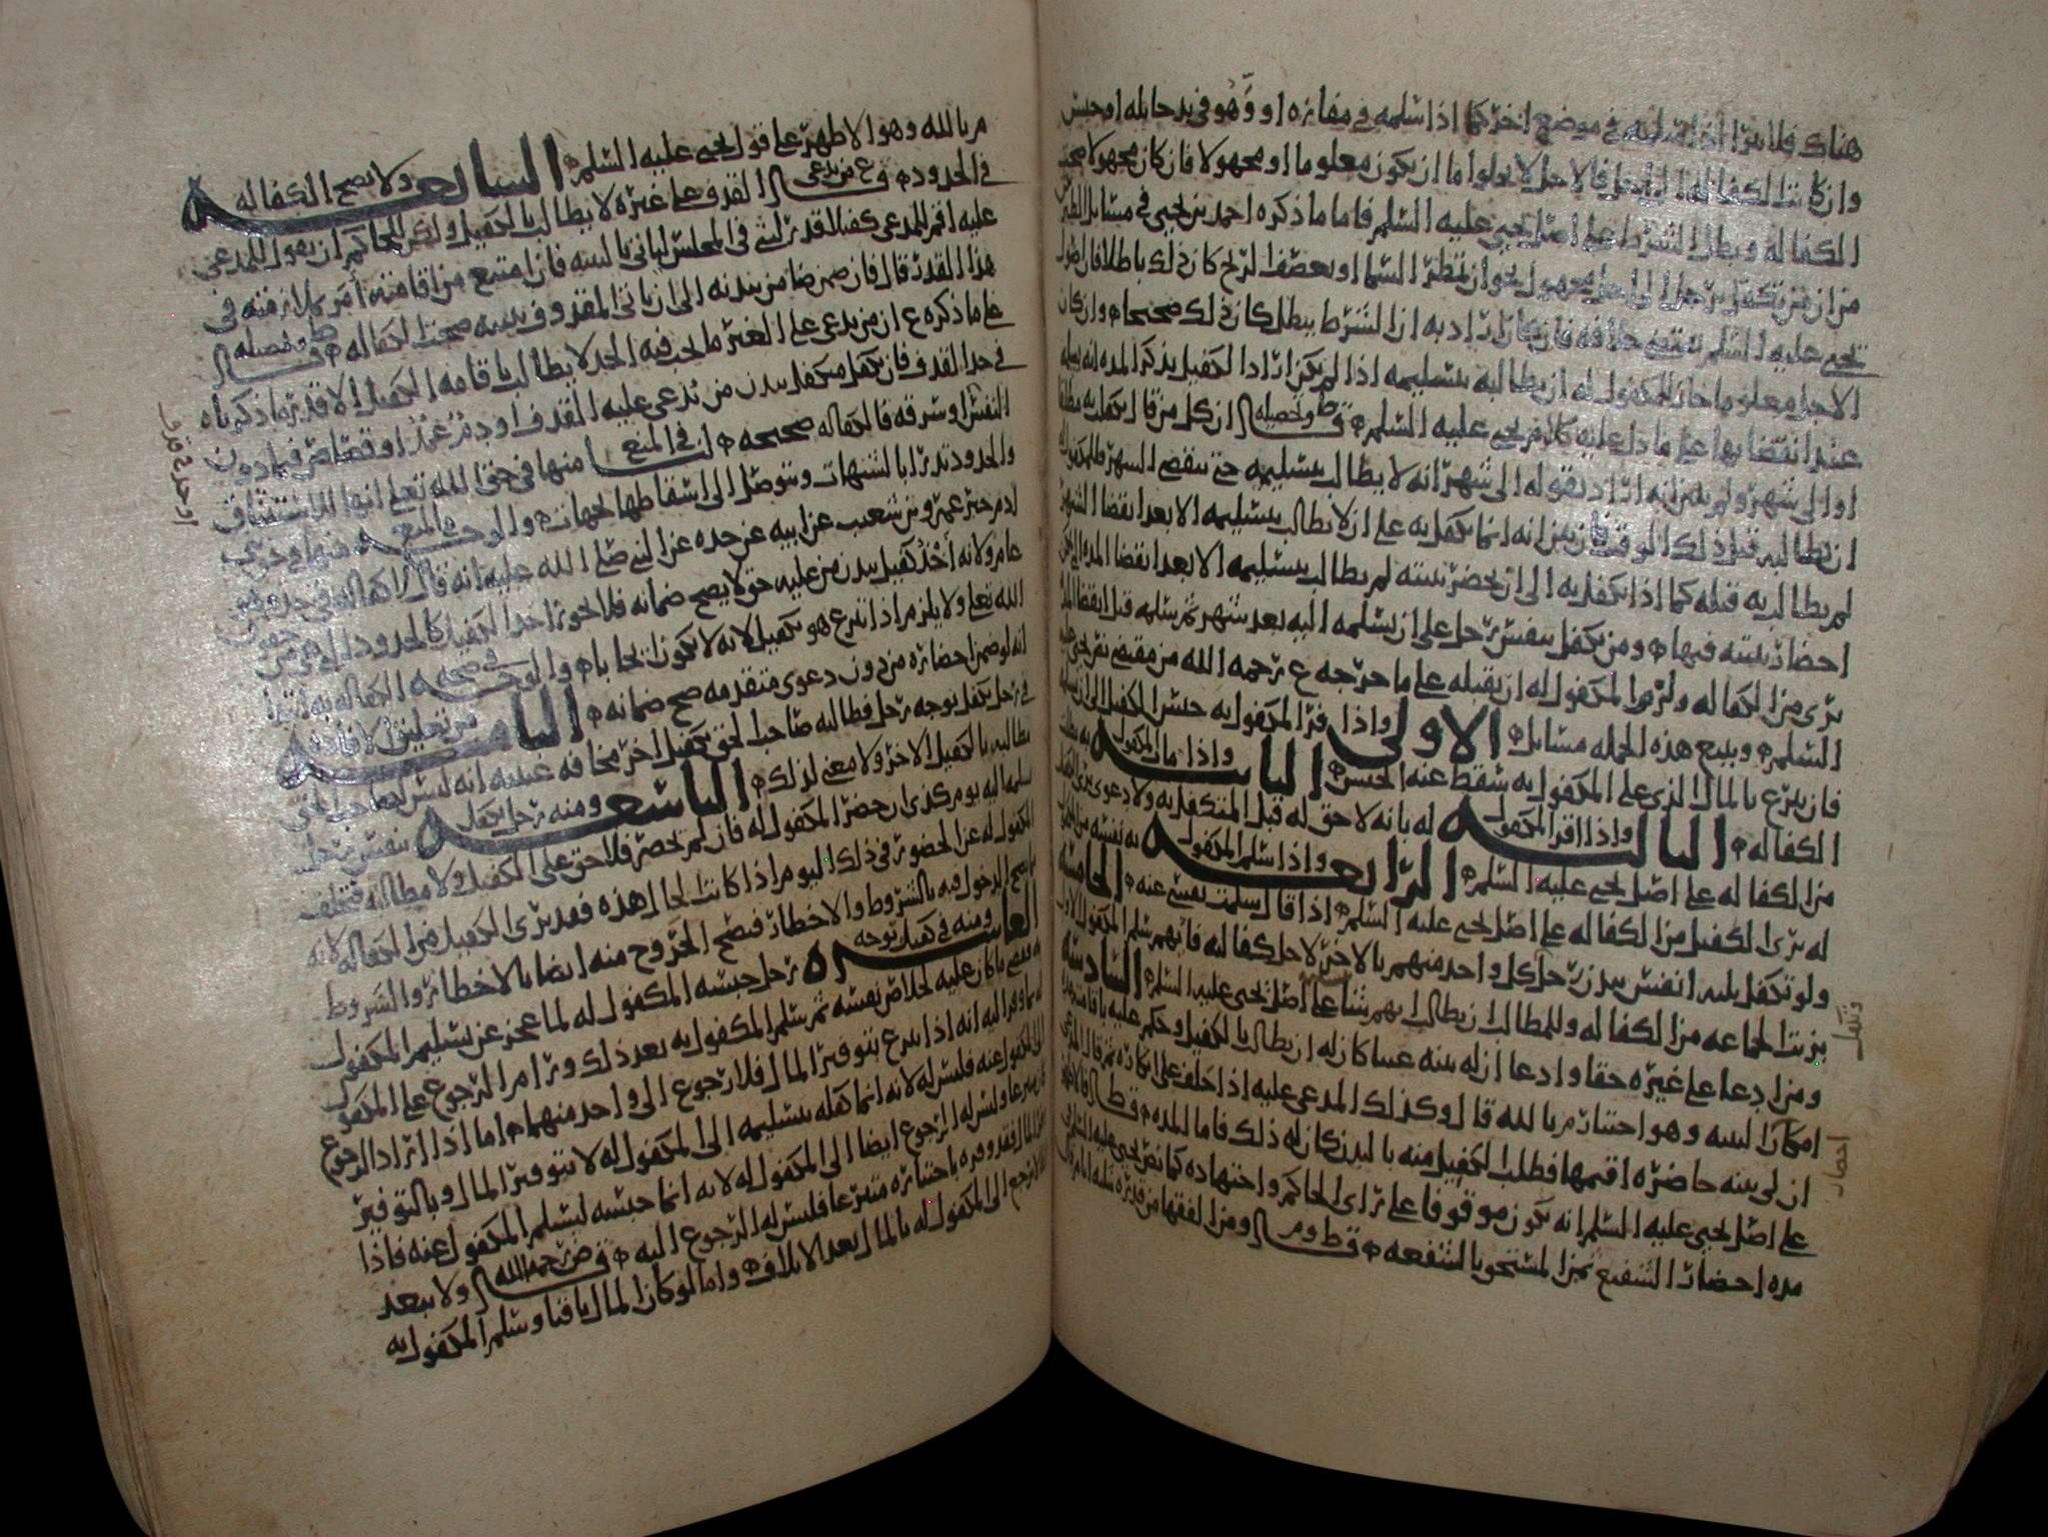 هناك فلا يبرا اذا سلمه في موضع اخر كما اذا سلمه في مفازه او وهو في يد حايله او حبس
وان كانت الكفاله الى اجل فالاجل لا يخلوا اما ان يكون معلوما او مجهولا فان كان مجهولا صحت
الكفاله وبطل الشرط على اصل يحيى عليه السلم فاما ما ذكره احمد بن يحيى في مسايل الطبريين
من ان من تكفل برجل الى اجل مجهول نحو ان تمطر السما او تعصف الريح كان ذلك باطلا فان اصول
يحيى عليه السلم تقتضي خلافه فان كان اراد به ان الشرط يبطل كان ذلك صحيحا وان كان
الاجل معلوما جاز للمكفول له ان يطالبه بتسليمه اذا لم يكن اراد الكفيل بذكر المده انه يسلمه
عند انقضايها على ما دل عليه كلام يحيى عليه السلم قال ط وتحصيله ان كل من قال تكفل به مطلقا
او الى شهر ولم يبين انه اراد بقوله الى شهر انه لا يطالب بتسليمه حتى ينقضي الشهر فللمكفول له
ان يطالبه قبل ذلك الوقت فان بين انه انما تكفل به على ان لا يطالب بتسليمه الا بعد انقضا الشهر
لم يطالب به قبله كما اذا تكفل به الى ان يحضر بينته لم يطالب بتسليمه الا بعد انقضا المده التي يمكن
احضار بينته فيها ومن تكفل بنفس رجل على ان يسلمه اليه بعد شهر ثم سلمه قبل انقضا المده
برى من الكفاله ولزم المكفول له ان يقبله على ما خرجه ع رحمه الله من مقتضى نص يحيى عليه
السلم ويتبع هذه الجمله مسايل الاولى واذا فر المكفول به حبس الكفيل الى ان يسلمه
فان تبرع بالمال الذي على المكفول به سقط عنه الحبس الثانيه واذا مات المكفول به بطلت
الكفاله الثالثه واذا اقر المكفول له بانه لا حق له قبل المتكفل به ولا دعوى برى الكفيل
من الكفاله على اصل يحيى عليه السلم الرابعه واذا سلم المكفول به نفسه من المكفول
له برى الكفيل من الكفاله على اصل يحيى عليه السلم اذا قال سلمت نفسي عنه الخامسه
ولو تكفل ثلثه انفس ببدن رجل كل واحد منهم بالاخر لاجل كفاليه فايهم سلم المكفول به الاول
برئت الجماعه من الكفاله وللمطالب ان يطالب ايهم شا على اصل يحيى عليه السلم السادسه
ومن ادعا على غيره حقا وادعا ان له بينه غيبا كان له ان يطالب بالكفيل وحكم عليه باقامته مده
امكان البينه وهو اختيار م بالله قال وكذلك المدعى عليه اذا حلف على انكاره ثم قال المدعي
ان لي بينه حاضره اقيمها فطلب الكفيل منه بالبدن كان له ذلك فاما المده قال ط فالاقرب
على اصل يحيى عليه السلم انه يكون موقوفا على راى الحاكم واجتهاده كما نص يحيى عليه السلم في
مده احضار الشفيع ثمن المستحق بالشفعه قال ط و م ومن الفقها من قدره بثلثه ايام قال
وتكفل
احضار
م بالله وهو الاظهر على قول يحيى عليه السلم السابعه ولا تصح الكفاله
في الحدود قال ع من يدعي القذف على غيره لا يطالب بالكفيل ولكن للحاكم ان يقول للمدعى
عليه اقم للمدعي كفيلا قدر لبثي في المجلس لياتي بالبينه فان امتنع من اقامته امر بملازمته في
هذا القدر قال فان ضمن رضا من بدنه الى ان ياتي المقذوف ببينه صحت الكفاله قال ط وتحصيله
على ما ذكره ع ان من يدعي على الغير ما يجب فيه الحد لا يطالب باقامه الكفيل الا قدر ما ذكرناه
في حد القذف فان تكفل متكفل ببدن من يدعى عليه القذف او دم عمد او قصاص فيما دون
النفس او سرقه فالكفاله صحيحه
والحدود تدرا بالشبهات ويتوصل الى اسقاطها بجهات
ادم خبر عمرو بن شعيب عن ابيه عن جده عن النبي صلى الله عليه انه قال لا كفاله في حد
عامر ولانه اخذ كفيل ببدن من عليه حق لا يصح ضمانه فلا يجوز اخذ الكفيل كالحدود
الله تعلى ولا يلزم اذا تبرع هو بكفيل لانه لا يكون ايجابا والوجه في صحه الكفاله به
انه لو ضمن احضاره من دون دعوى متقدمه صح ضمانه الثامنه من تعليق الافاده
في رجل تكفل بوجه رجل فطالبه صاحب الحق بكفيل اخر مخافه غيبته انه ليس لصاحب الحق
مطالبته بالكفيل الاخر ولا معنى لذلك التاسعه ومنه رجل تكفل بنفس رجل
يسلمها اليه يوم كذى ان حضر المكفول له فان لم يحضر فلا حق على الكفيل ولا مطالبه فتخلف
المكفول له عن الحضور في ذلك اليوم اذا كانت الحال هذه فقد برى الكفيل من الكفاله لانه
يصح الدخول فيه بالشروط والاخطار فيصح الخروج منه ايضا بالاخطار والشروط
العاشره ومنه في كفيل بوجه رجل حبسه المكفول له لما عجز عن تسليم المكفول
به فقضى ما كان عليه لخلاص نفسه ثم سلم المكفول به بعد ذلك ورام الرجوع على المكفول
له بما وفر اليه انه اذا تبرع بتوفير المال فلا رجوع الى واحد منهما اما اذا اراد الرجوع
الى المكفول عنه فليس له لانه انما كفله بتسليمه الى المكفول له لا بتوفير المال وبالتوفير
كان متبرعا وليس له الرجوع ايضا الى المكفول له لانه انما حبسه ليسلم المكفول عنه فاذا
وفر المال فقد وفره باختياره متبرعا فليس له الرجوع اليه قال ض رحمه الله ولا يبعد
ان يرجع الى المكفول له بالمال بعد الاتلاف واما لو كان المال باقيا وسلم المكفول به